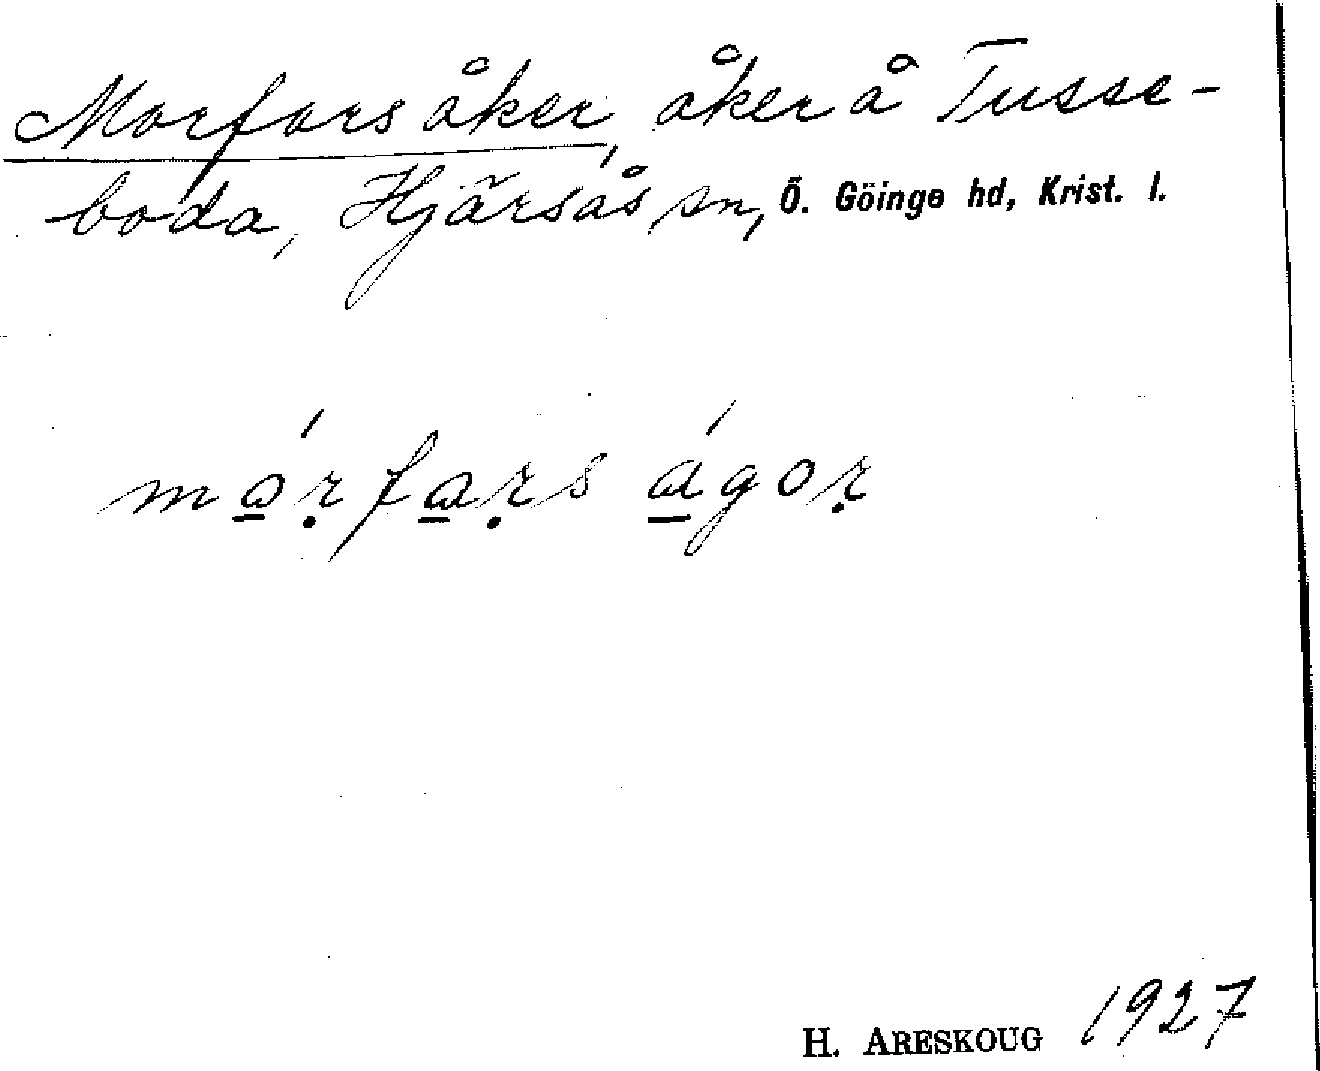 Morfars åker, åker å Tusse-
boda, Hjärsås sn, Ö. Göinge hd, Krist. l.
mó̲ṛfa̲ṛs á̲goṛ
H. ARESKOUG 1927